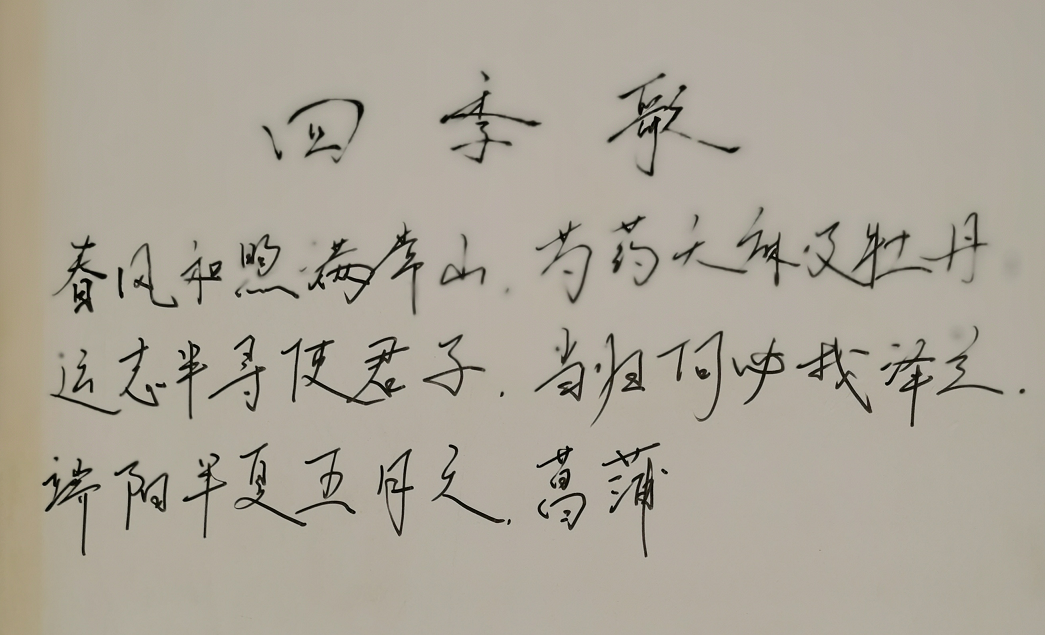 四季歌
春风和煦满常山.芍药天麻及牡丹
远志半寻使君子.当归何必找泽兰.
端阳半夏五月天.菖蒲